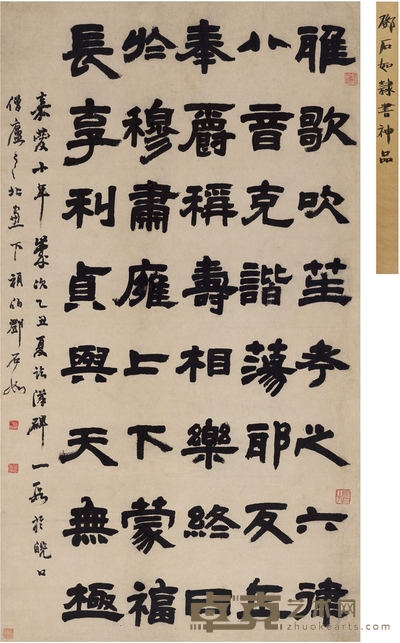 鄧石如隸書神品
雅歌吹笙考之六律
八音克諧蕩耶反正
奉爵稱壽相樂終日
於穆肅廱上下蒙福
長享利貞與天無極
嘉慶十年歲次乙丑夏臨漢碑一段於皖口
僧廬之北窗下頑伯鄧石如
卓克艺术网
www.zhuokearts.com